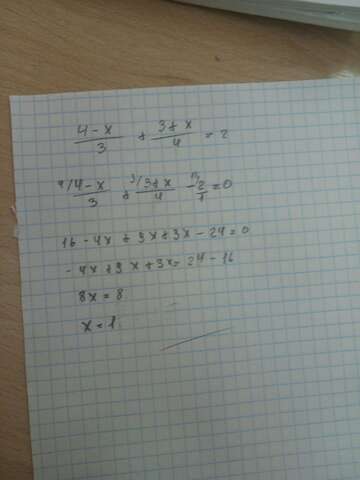 (4-x)/3 + (3+x)/4 = 2
4/ (4-x)/3 + 3/ (3+x)/4 - 12/ 2/1 = 0
16 - 4x + 9x + 3x - 24 = 0
- 4x + 9x + 3x = 24 - 16
8x = 8
x = 1